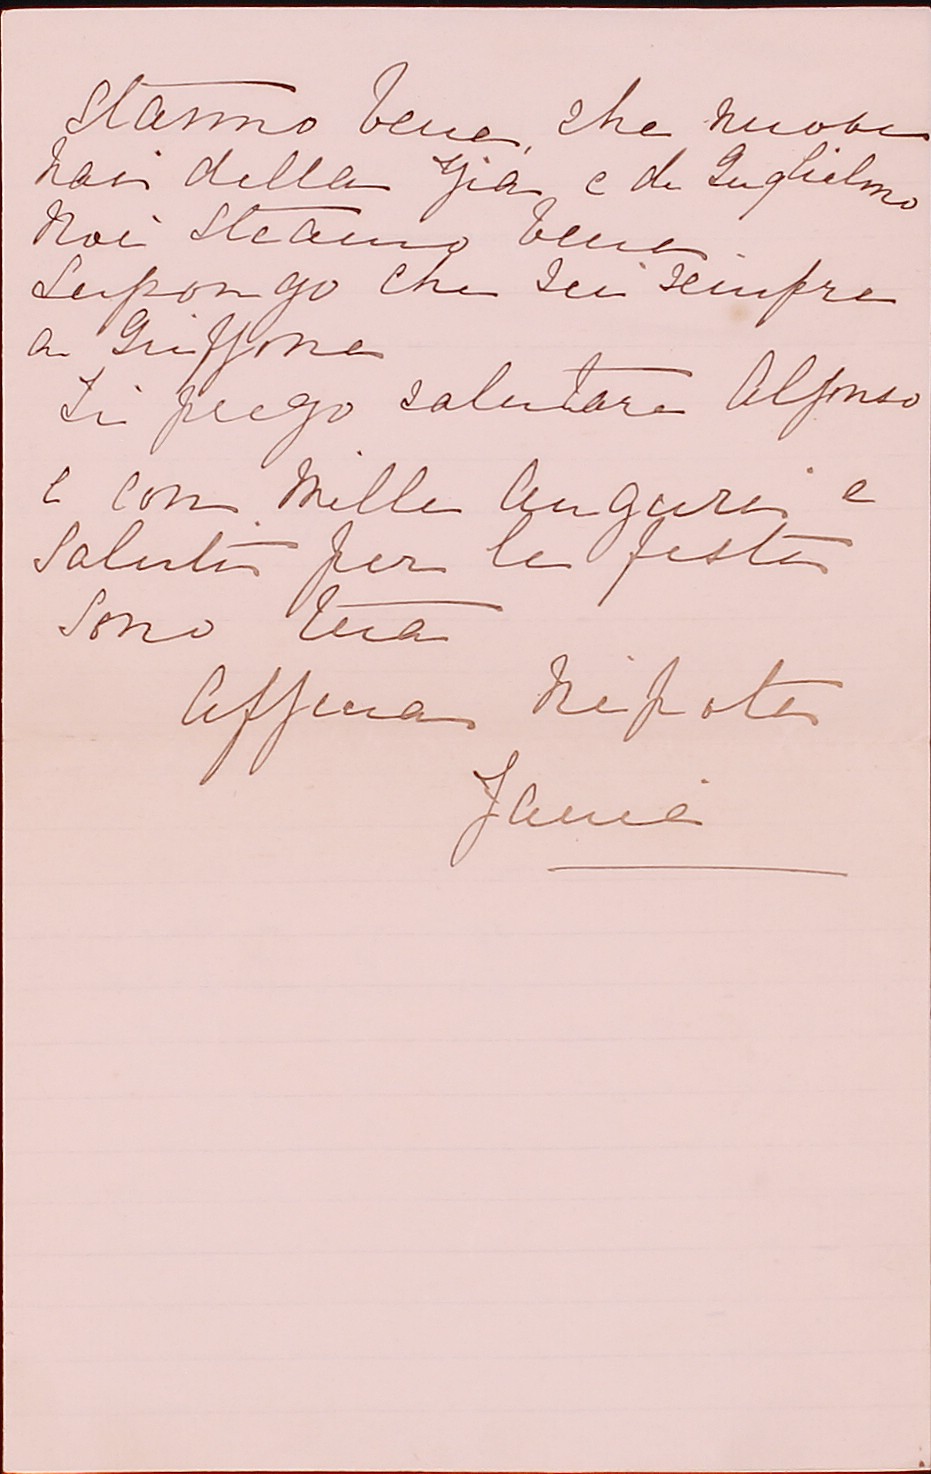 stanno bene, che nuove
hai della Zia e di Guglielmo
Noi steamo bene
Supongo che sei seimpre
a Griffone
Ti prego salutare Alfonso
e con mille Auguri e
Saluti per le feste
Sono tua
Affma Nipote